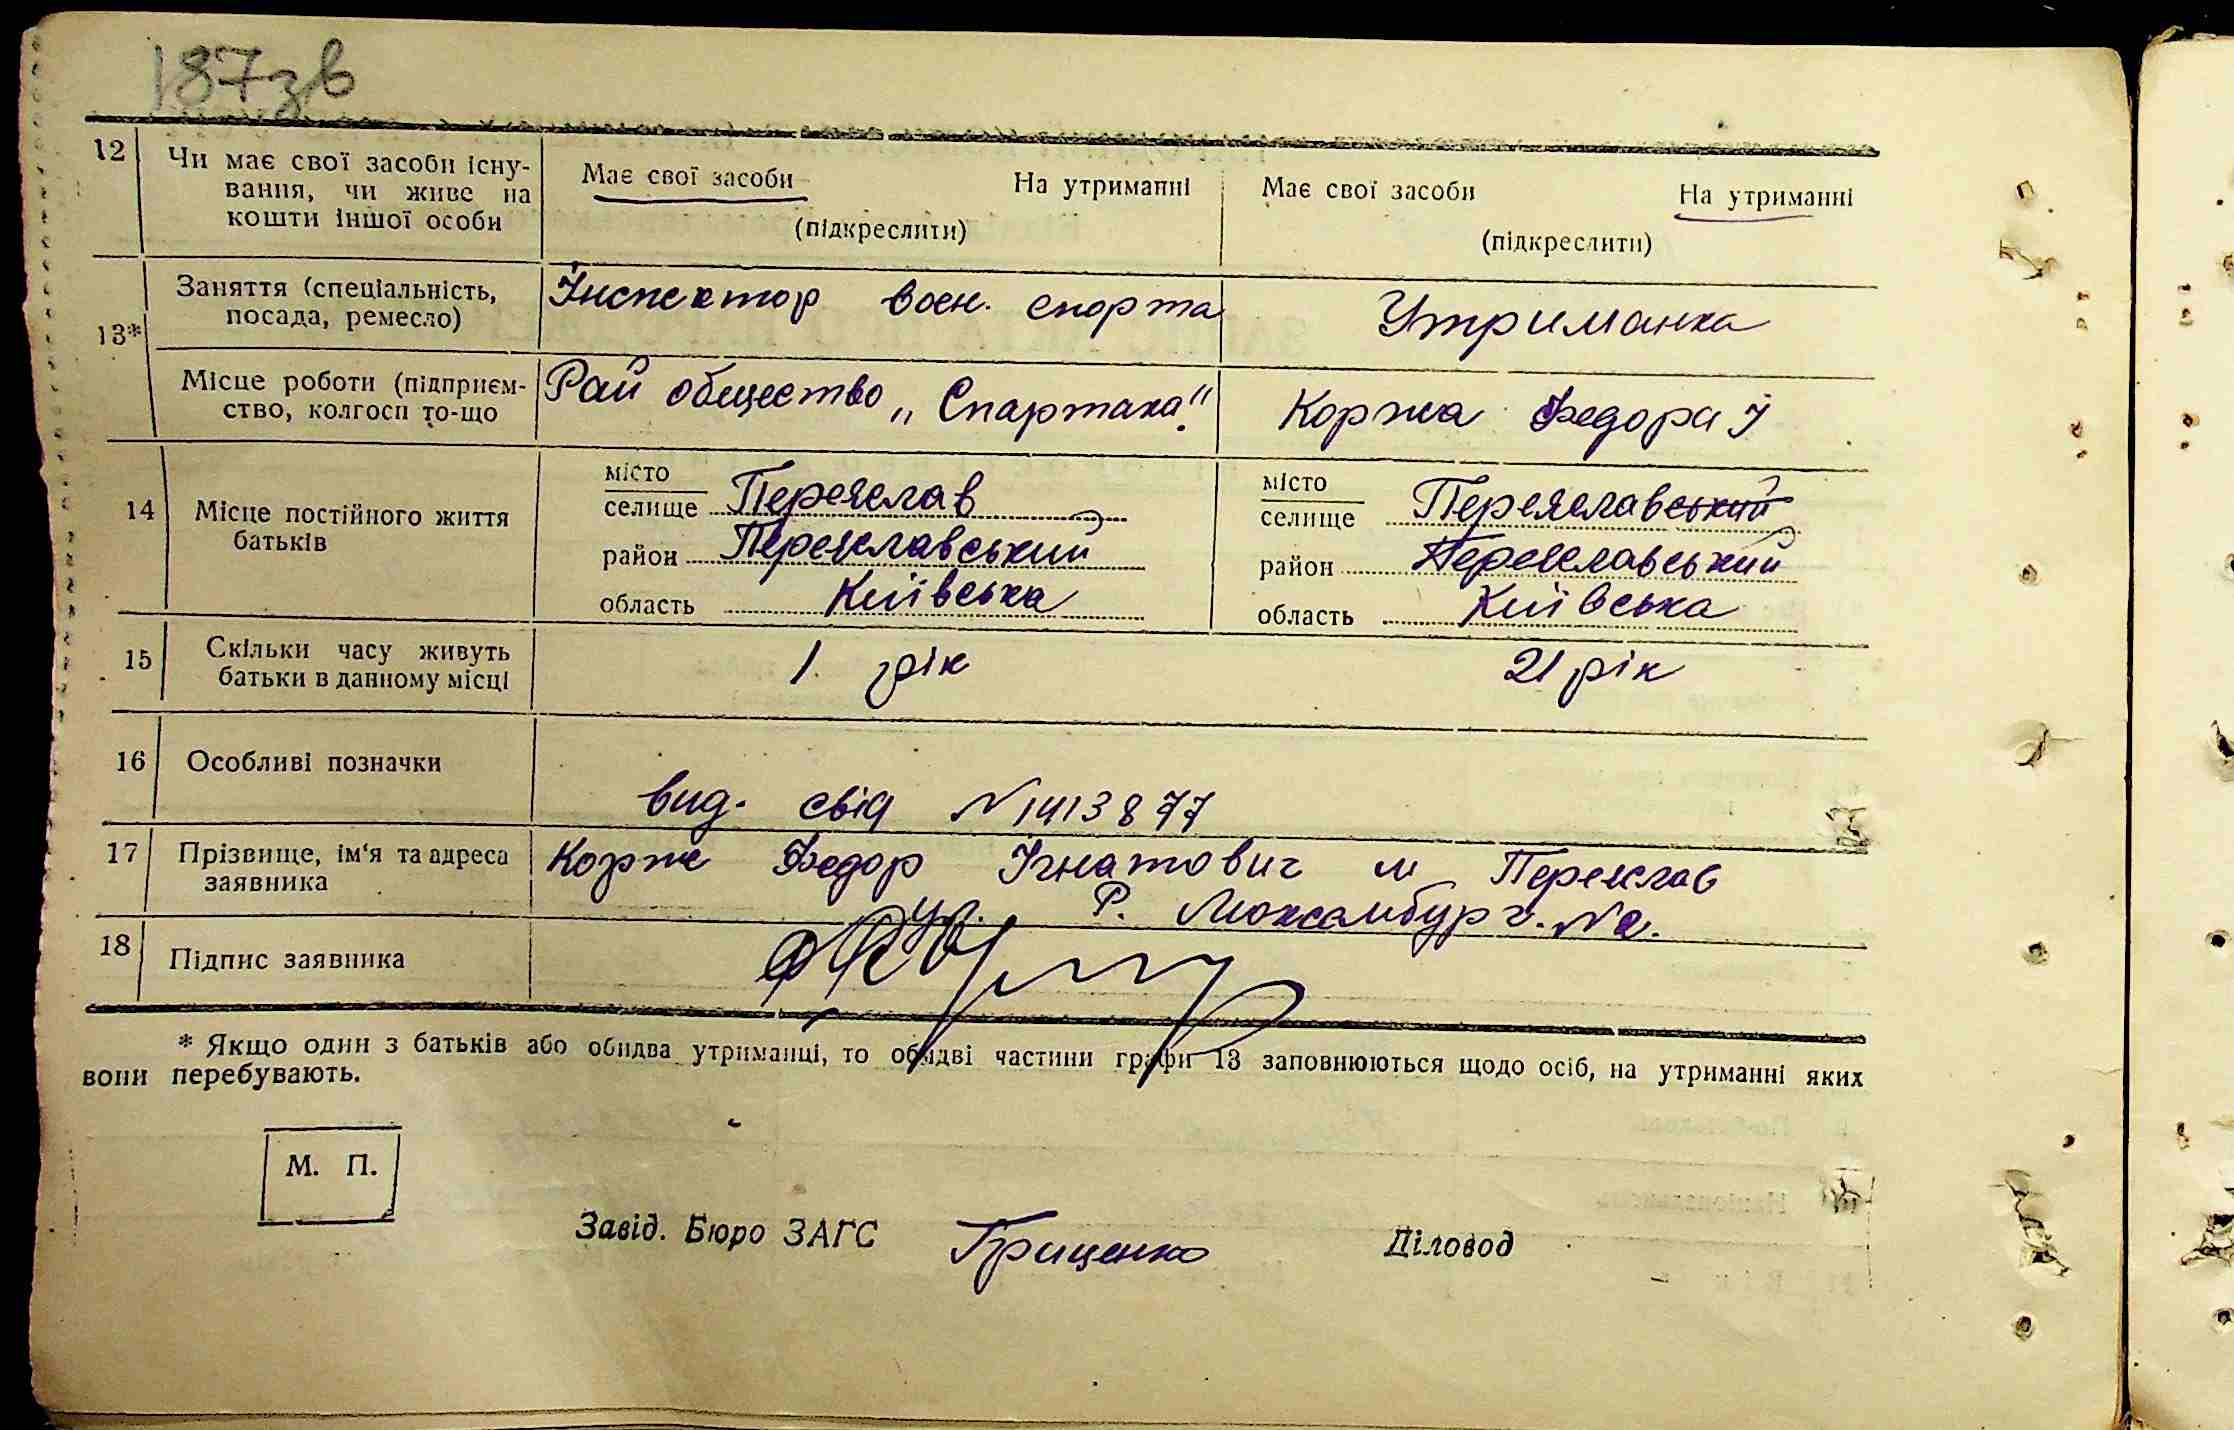 187зв
12
Чи має свої засоби існу-
вання, чи живе на
кошти іншої особи
Має свої засоби На утриманні
(підкреслити)
Має свої засоби На утриманні
(підкреслити)
13*
Заняття (спеціальність,
посада, ремесло)
Інспектор воєн. спорта
Утриманка
Місце роботи (підприєм-
ство, колгосп то-що
Рай общество „Спартака"
Коржа Федора І
14
Місце постійного життя
батьків
місто
селище Переяслав
район Переяславський
область Київська
місто
селище Переяславський
район Переяславський
область Київська
15
Скільки часу живуть
батьки в данному місці
1 рік
21 рік
16
Особливі позначки
вид. свід N 1413877
17
Прізвище, ім'я та адреса
заявника
Корж Федор Ігнатович м Переяслав
ул. Р. Люксембург.
18
Підпис заявника
* Якщо один з батьків або обидва утриманці, то обидві частини графи 13 заповнюються щодо осіб, на утриманні яких
вони перебувають.
М. П.
Завід. Бюро ЗАГС Гриценко Діловод